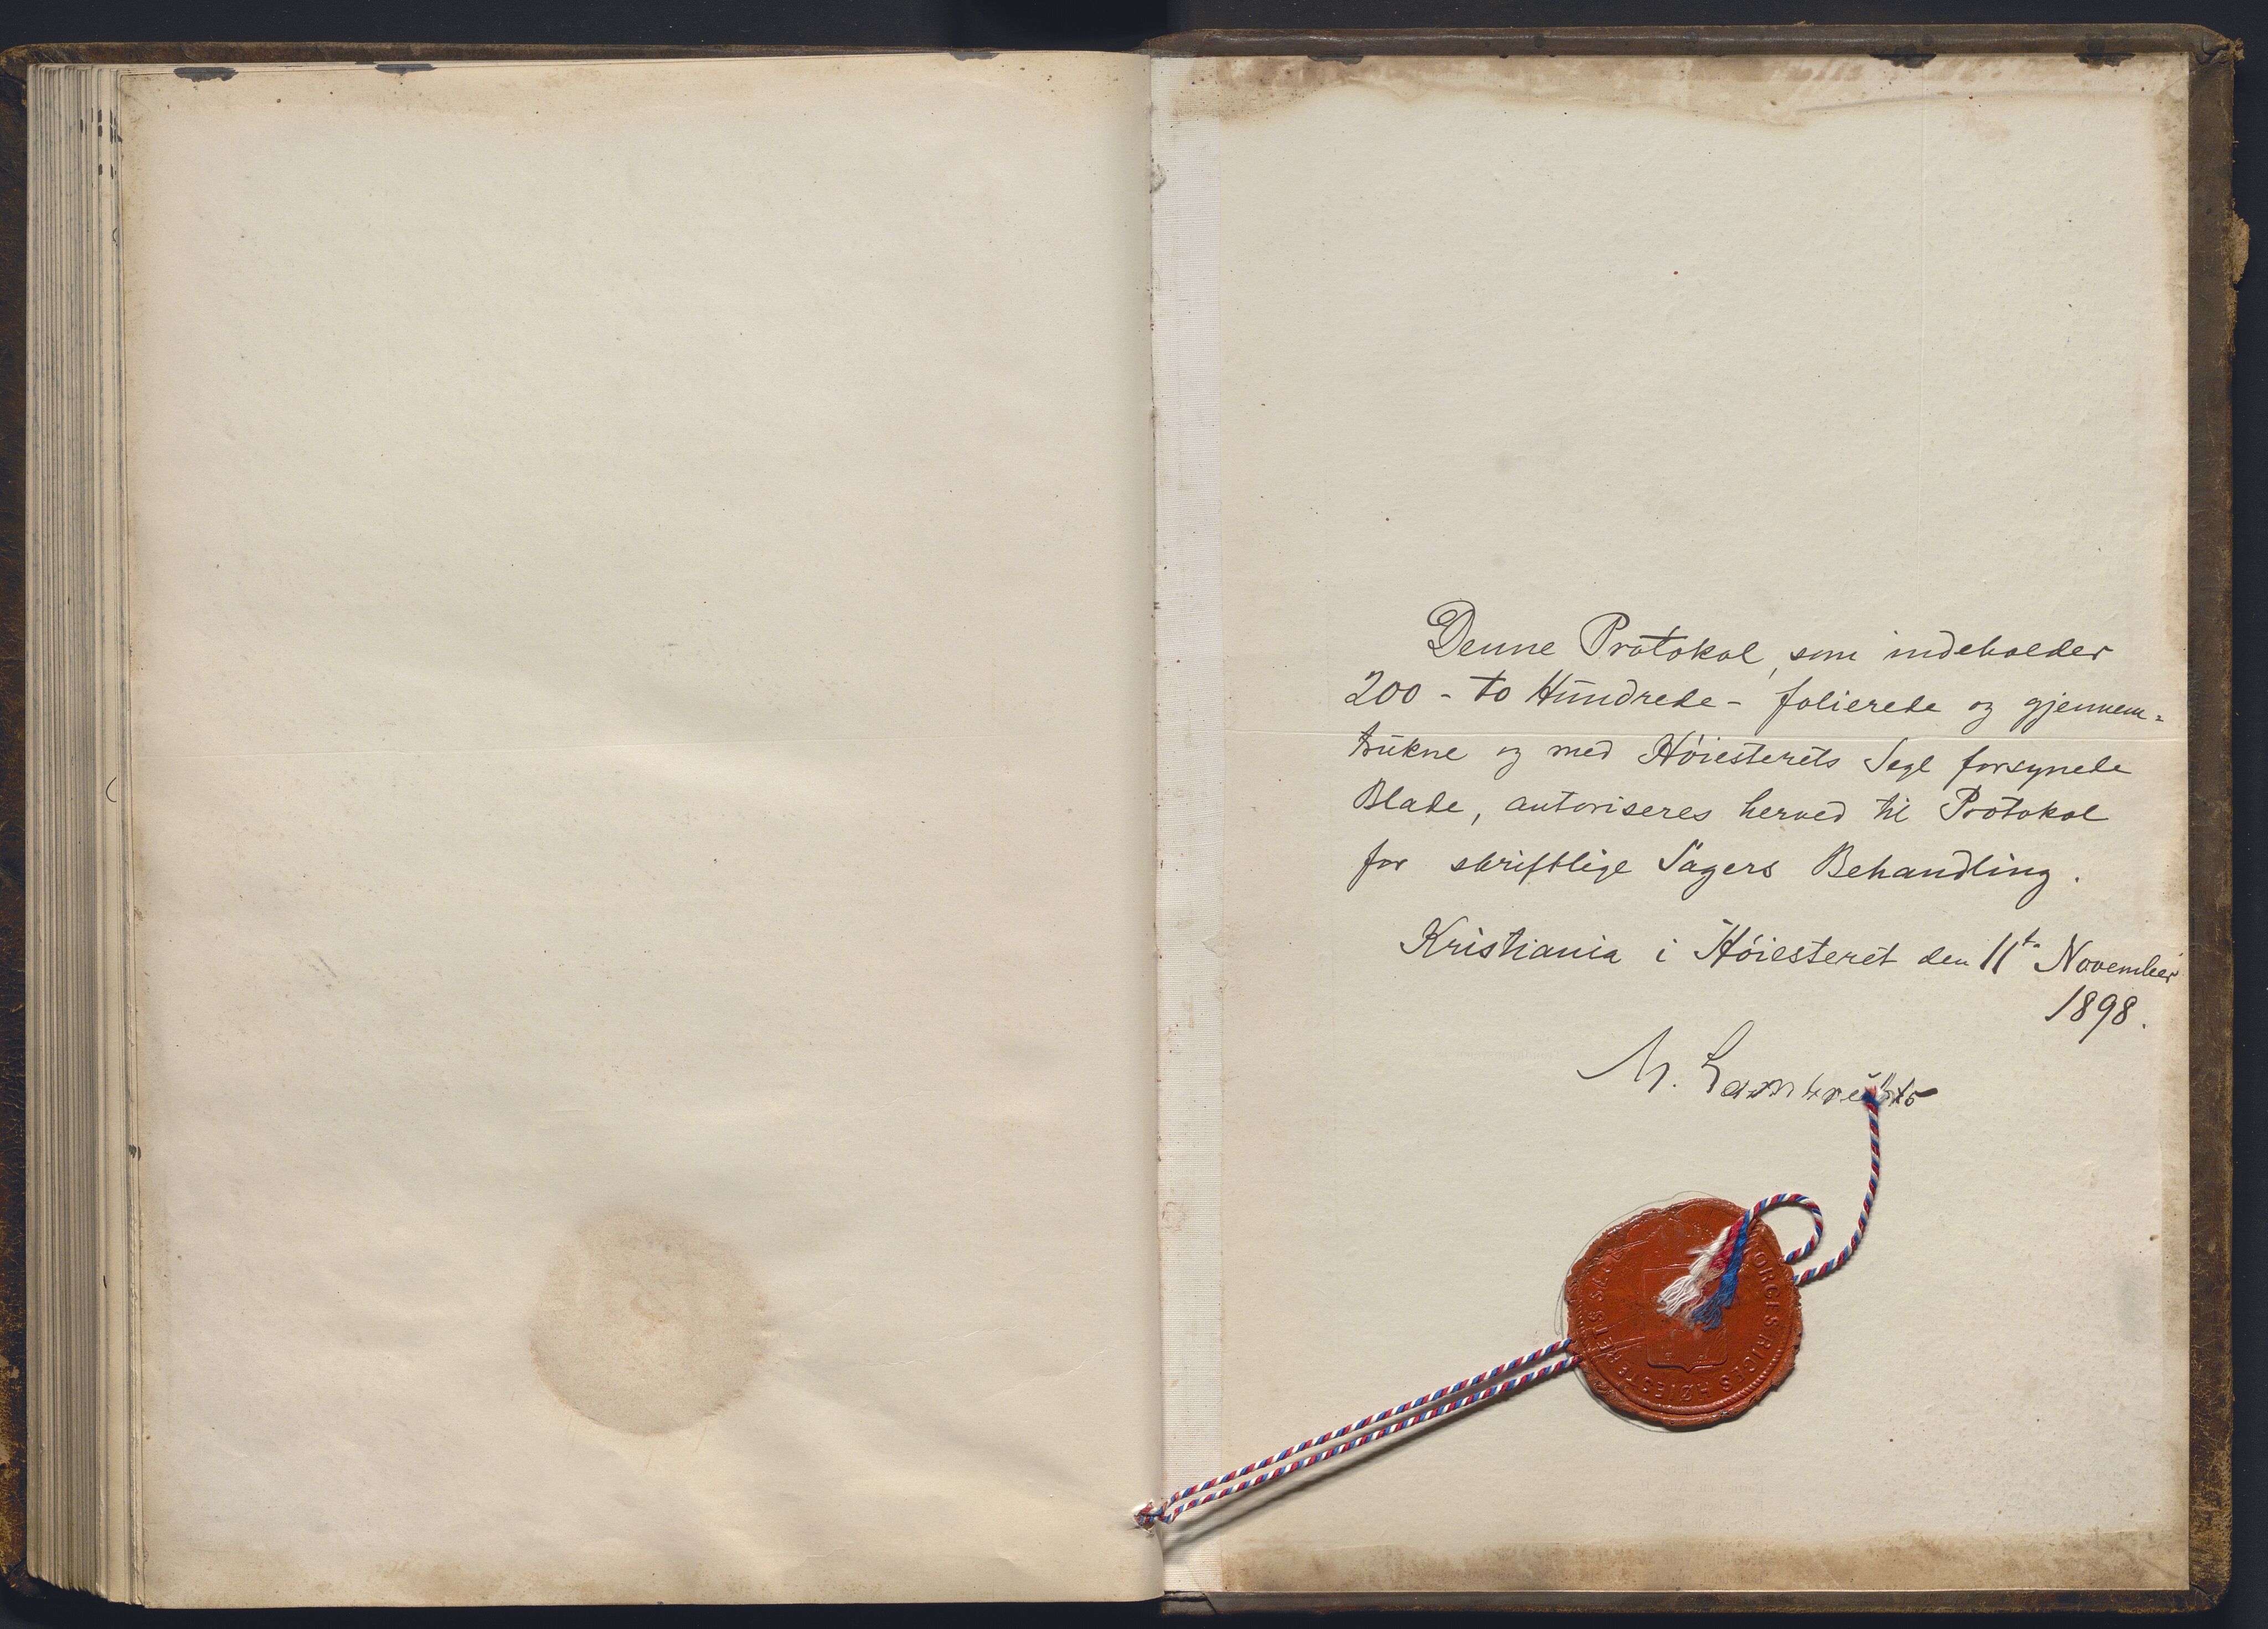 Denne Protokol, som indeholder
200 - to Hundrede - folierede og gjennem=
trukne og med Höiesterets Segl forsynede
Blade, autoriseres herved til Protokol
for skriftlige Sagers Behandling.
Kristiania i Höiesteret den 11te November
1898.
M. Lambrechts
NORGES RIGES HØIESTERETS SEGL